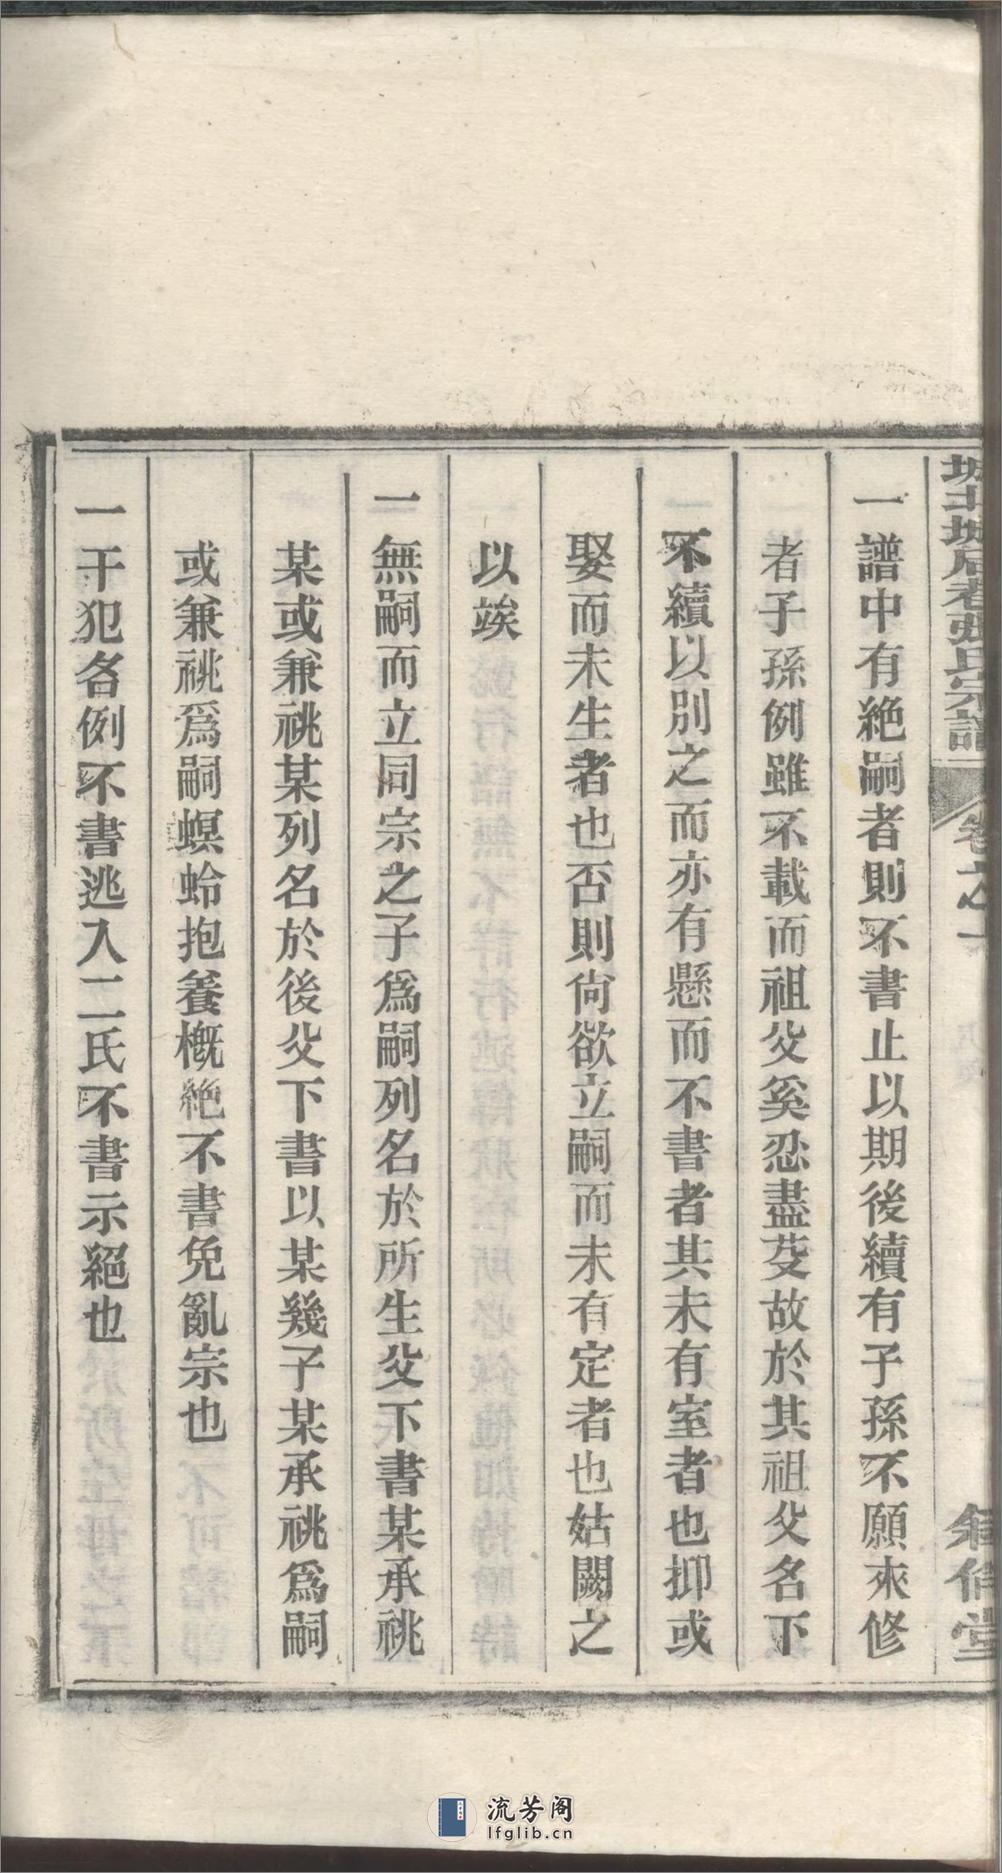 一譜中有絶嗣者則不書止以期後續有子孫不願來修
者子孫例雖不載而祖父奚忍盡芟故於其祖父名下
不續以別之而亦有懸而不書者其未有室者也抑或
娶而未生者也否則尙欲立嗣而未有定者也姑闕之
以竢
一無嗣而立同宗之子爲嗣列名於所生父下書某承祧
某或兼祧某列名於後父下書以某幾子某承祧爲嗣
或兼祧爲嗣螟蛉抱養槪絶不書免亂宗也
一干犯各例不書逃入二氏不書示絕也
流芳阁
lfglib.cn